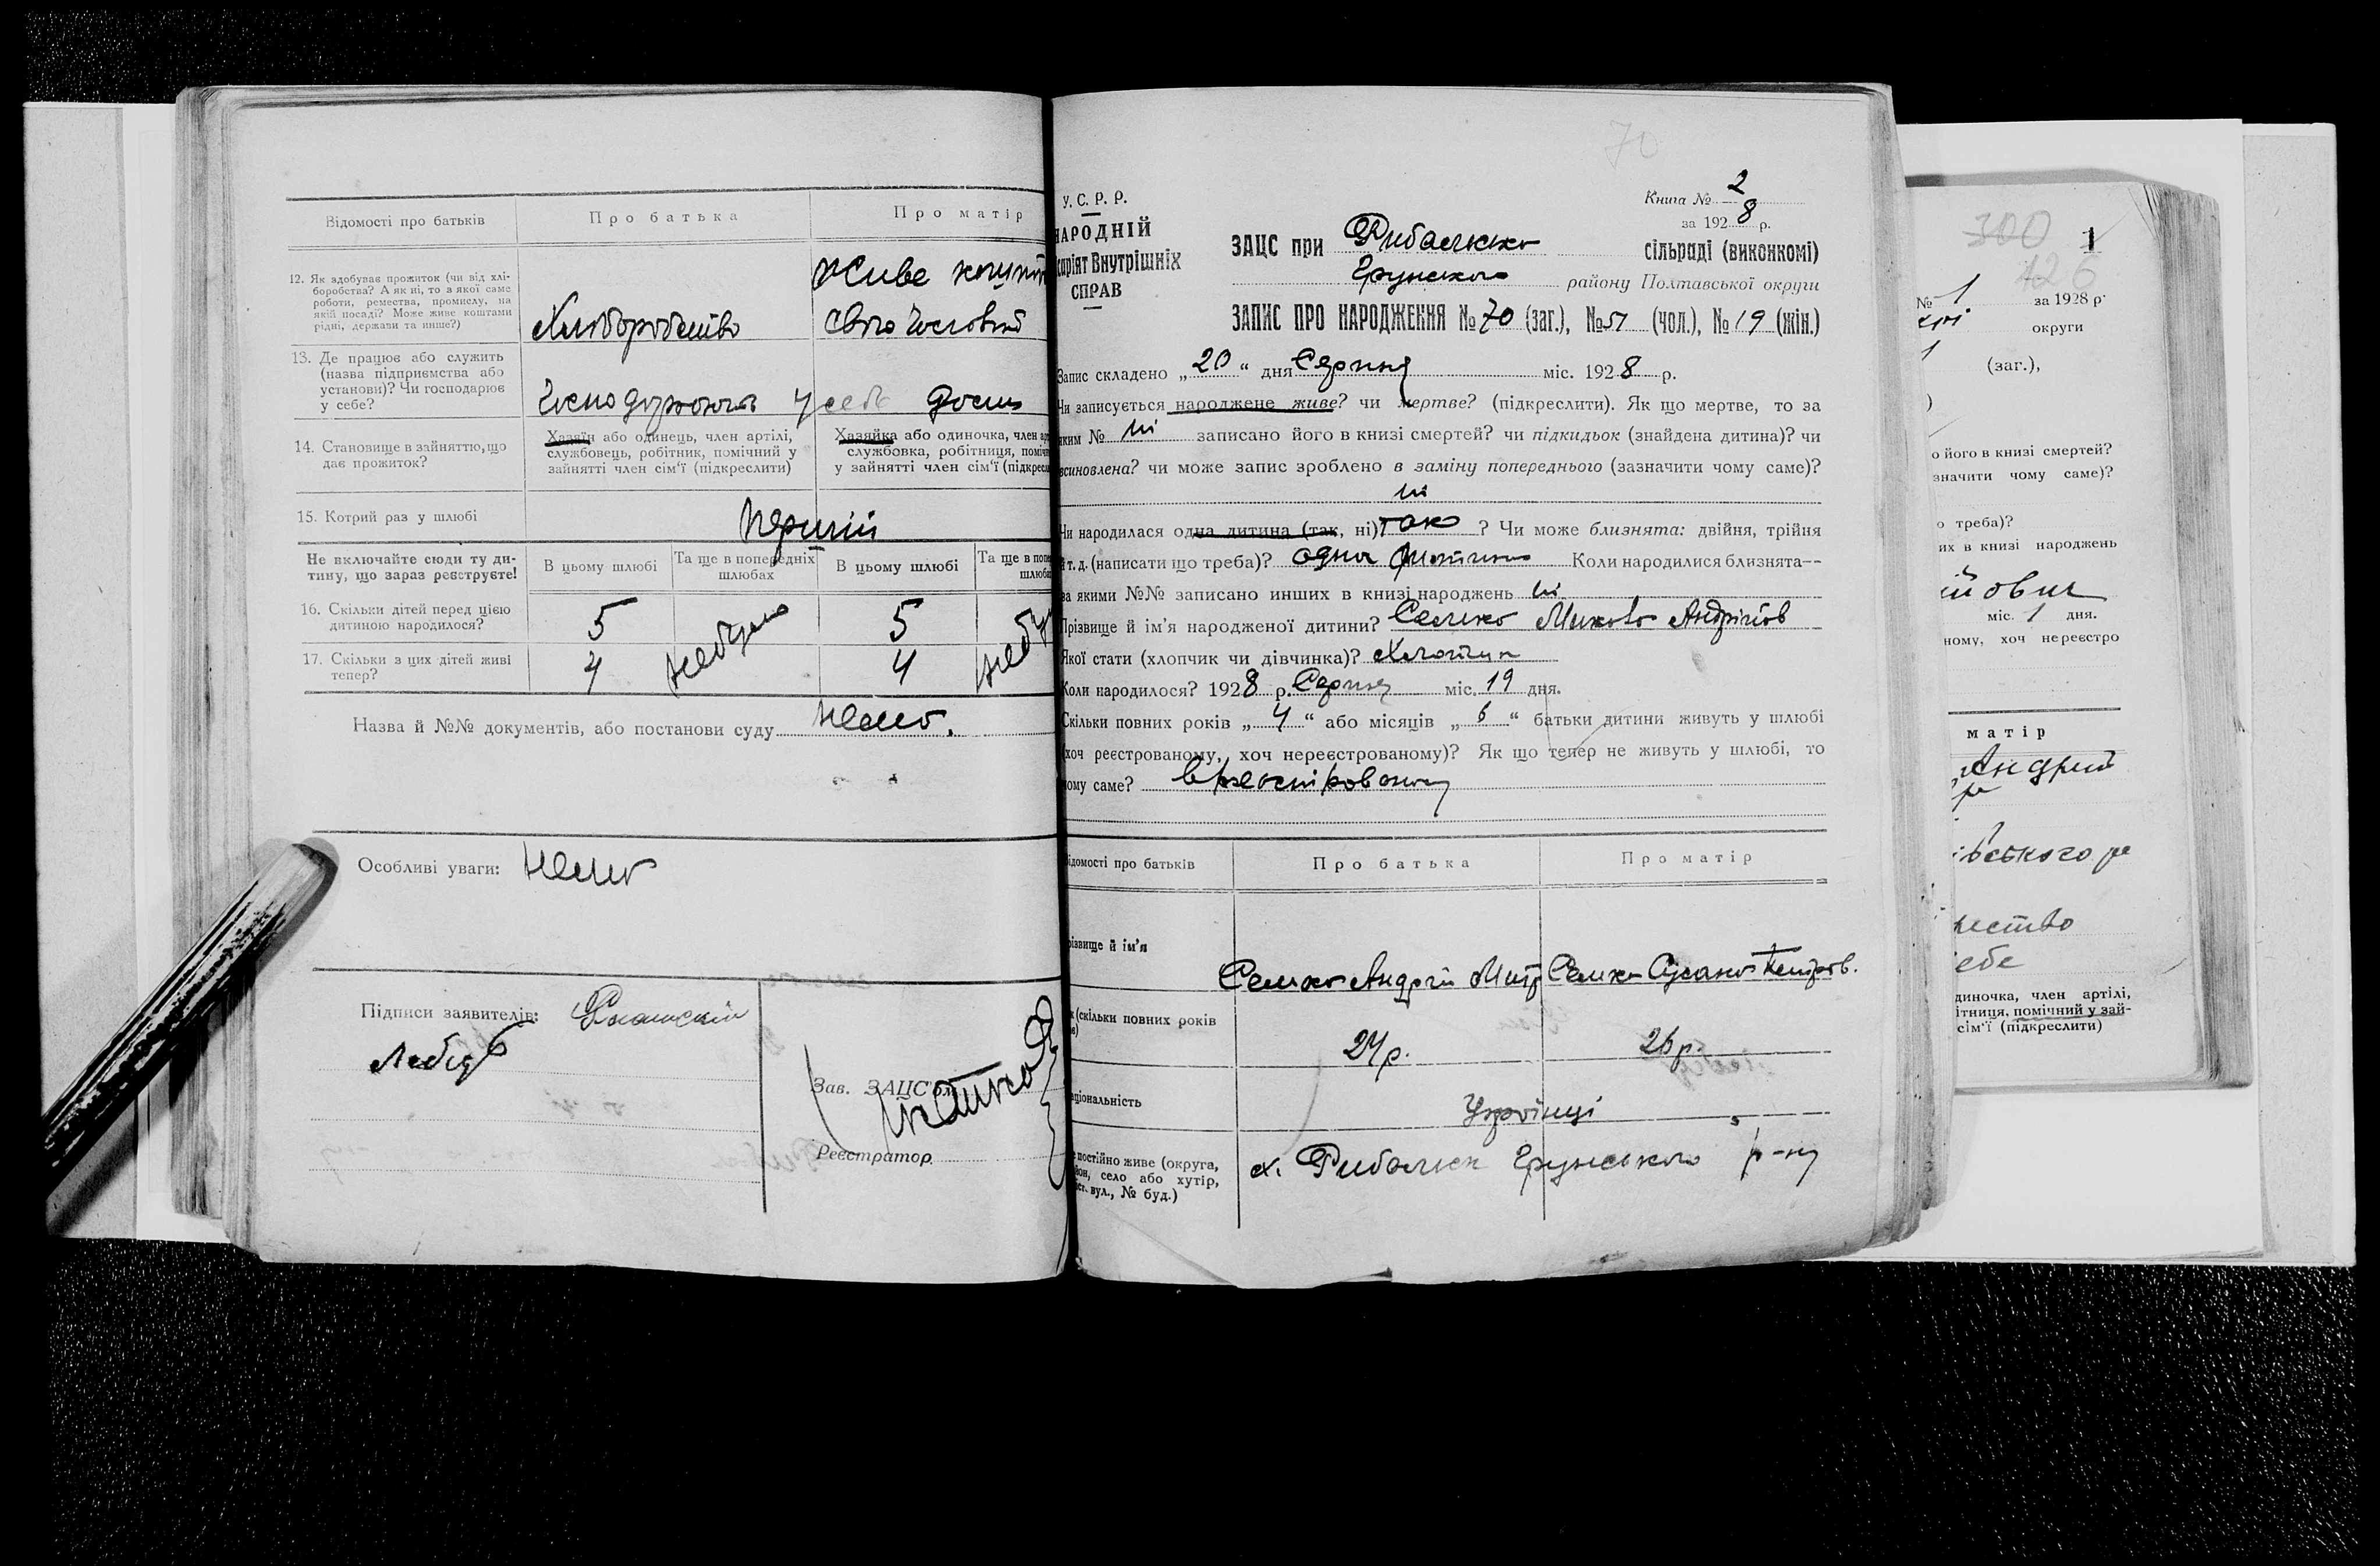 Відомості про батьків
Про батька
Про матір
12. Як здобуває прожиток (чи від хлі-
боробства? А як ні, то з якої саме
роботи, ремества, промислу, на
якій посаді? Може живе коштами
рідні, держави та инше?)
Хліборобство
Живе кошт
свого чоловіка
13. Де працює або служить
(назва підприємства або
установи)? Чи господарює
у себе?
Господарюють у себе дома
14. Становище в зайняттю, що
дає прожиток?
Хазяїн або одинець, член артілі,
службовець, робітник, помічний у
зайнятті член сім'ї (підкреслити)
Хазяйка або одиночка, член
службовка, робітниця,
у зайнятті член сім'ї
15. Котрий раз у шлюбі
Перший
Не включайте сюди ту ди-
тину, що зараз реєструєте!
В цьому шлюбі
Та ще в попередніх
шлюбах
В цьому шлюбі
Та ще в
16. Скільки дітей перед цією
дитиною народилося?
5
5
17. Скільки з цих дітей живі
тепер?
4
небуло
4
Назва й №№ документів, або постанови суду
Нема.
Особливі уваги: Нема
Підписи заявителів:
Лебідь
Зав. ЗАЦС'ом
Реєстратор
70
У.С.Р.Р.
НАРОДНІЙ
Внутрішніх
СПРАВ
Книга № 2
за 1928 р.
ЗАЦС при Рибалкско сільраді (виконкомі)
Грунского району Полтавської округи
ЗАПИС ПРО НАРОДЖЕННЯ № 70 (заг.), № 51 (чол.), № 19 (жін.)
Запис складено „20“ дня Серпня міс. 1928 р.
Чи записується народжене живе? чи мертве? (підкреслити). Як що мертве, то за
яким № ні записано його в книзі смертей? чи підкидьок (знайдена дитина)? чи
всиновлена? чи може запис зроблено в заміну попереднього (зазначити чому саме)?
ні
Чи народилася одна дитина (так, ні) так? Чи може близнята: двійня, трійня
й т. д. (написати що треба)? одна дитина Коли народилися близнята—
за якими №№ записано инших в книзі народжень ні
Прізвище й ім'я народженої дитини? Семко Микола Андріїв
Якої стати (хлопчик чи дівчинка)? Хлопчик
Коли народилося? 1928 р. Серпня міс. 19 дня.
Скільки повних років „4“ або місяців „6“ батьки дитини живуть у шлюбі
(хоч реєстрованому, хоч нереєстрованому)? Як що тепер не живуть у шлюбі, то
чому саме?
Відомості про батьків
Про батька
Про матір
Прізвище й ім'я
Семко Андрій Митр
Семко Сусана Петров.
(скільки повних років
24 р.
26 р.
Національність
Українці
постійно живе (округа,
село або хутір,
вул., № буд.)
х. Рибалки Грунського р-ну
300 1
126
№ 1 за 1928 р.
округи
(заг.),
о його в книзі смертей?
значити чому саме)?
о треба)?
их в книзі народжень
міс. 1 дня.
ному, хоч нереєстро
матір
Андрій
ського р
ество
ебе
диночка, член артілі,
ітниця, помічний у зай-
сім'ї (підкреслити)